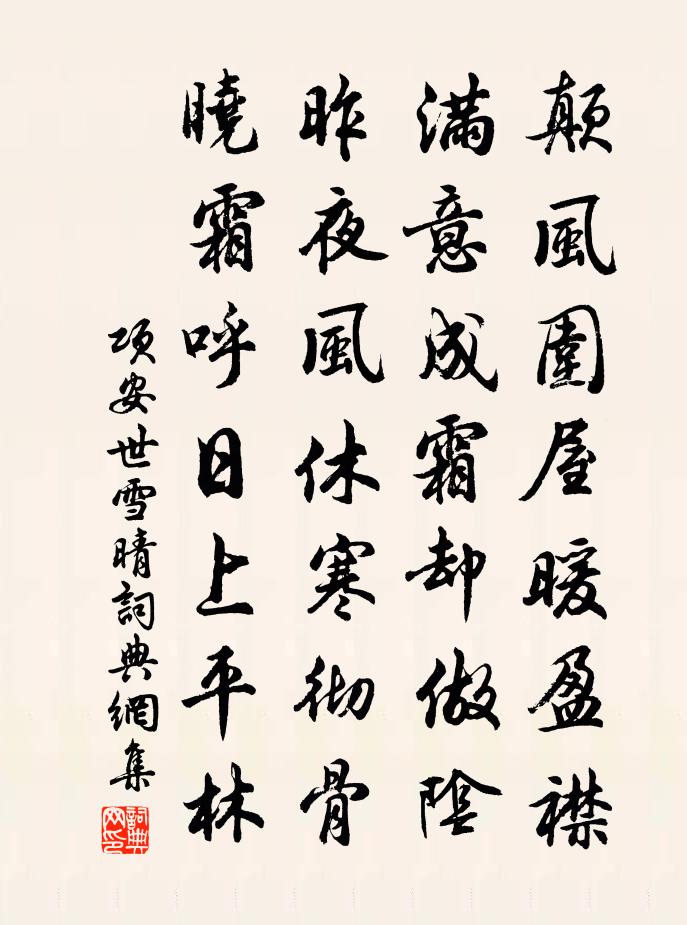 顛風圍屋暖盈襟
滿意成霜却做陰
昨夜風休寒彻骨
曉霜呼日上平林
項安世雪晴詞典網集
詞典網印